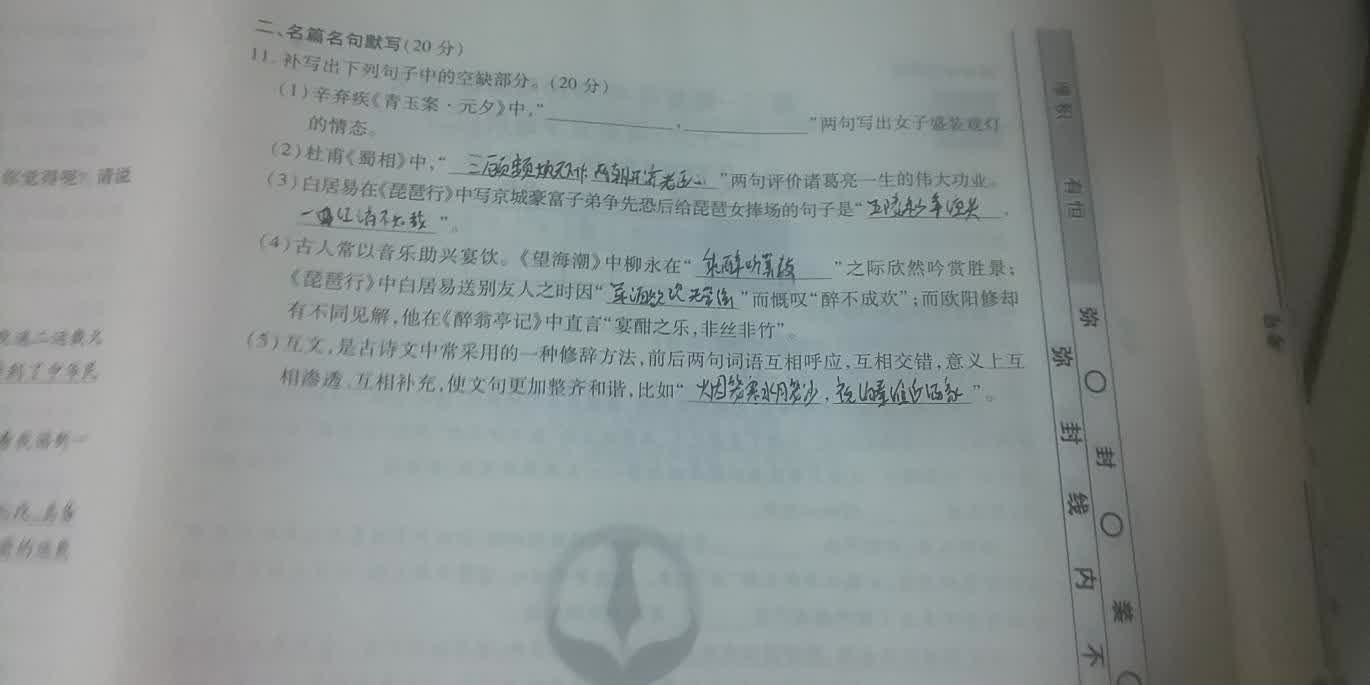 二、名篇名句默写(20分)
11. 补写出下列句子中的空缺部分。(20分)
(1)辛弃疾《青玉案·元夕》中,“____________,____________”两句写出女子盛装观灯
的情态。
(2)杜甫《蜀相》中,“三顾频烦天下计 两朝开济老臣心”两句评价诸葛亮一生的伟大功业。
(3)白居易在《琵琶行》中写京城豪富子弟争先恐后给琵琶女捧场的句子是“五陵年少争缠头,
一曲红绡不知数”。
(4)古人常以音乐助兴宴饮。《望海潮》中柳永在“乘醉听箫鼓”之际欣然吟赏胜景;
《琵琶行》中白居易送别友人之时因“举酒欲饮无管弦”而慨叹“醉不成欢”;而欧阳修却
有不同见解,他在《醉翁亭记》中直言“宴酣之乐,非丝非竹”。
(5)互文,是古诗文中常采用的一种修辞方法,前后两句词语互相呼应,互相交错,意义上互
相渗透、互相补充,使文句更加整齐和谐,比如“烟笼寒水月笼沙,夜泊秦淮近酒家”。
你觉得呢?请运
弥 封 线 内 不
弥 封 装
有恒